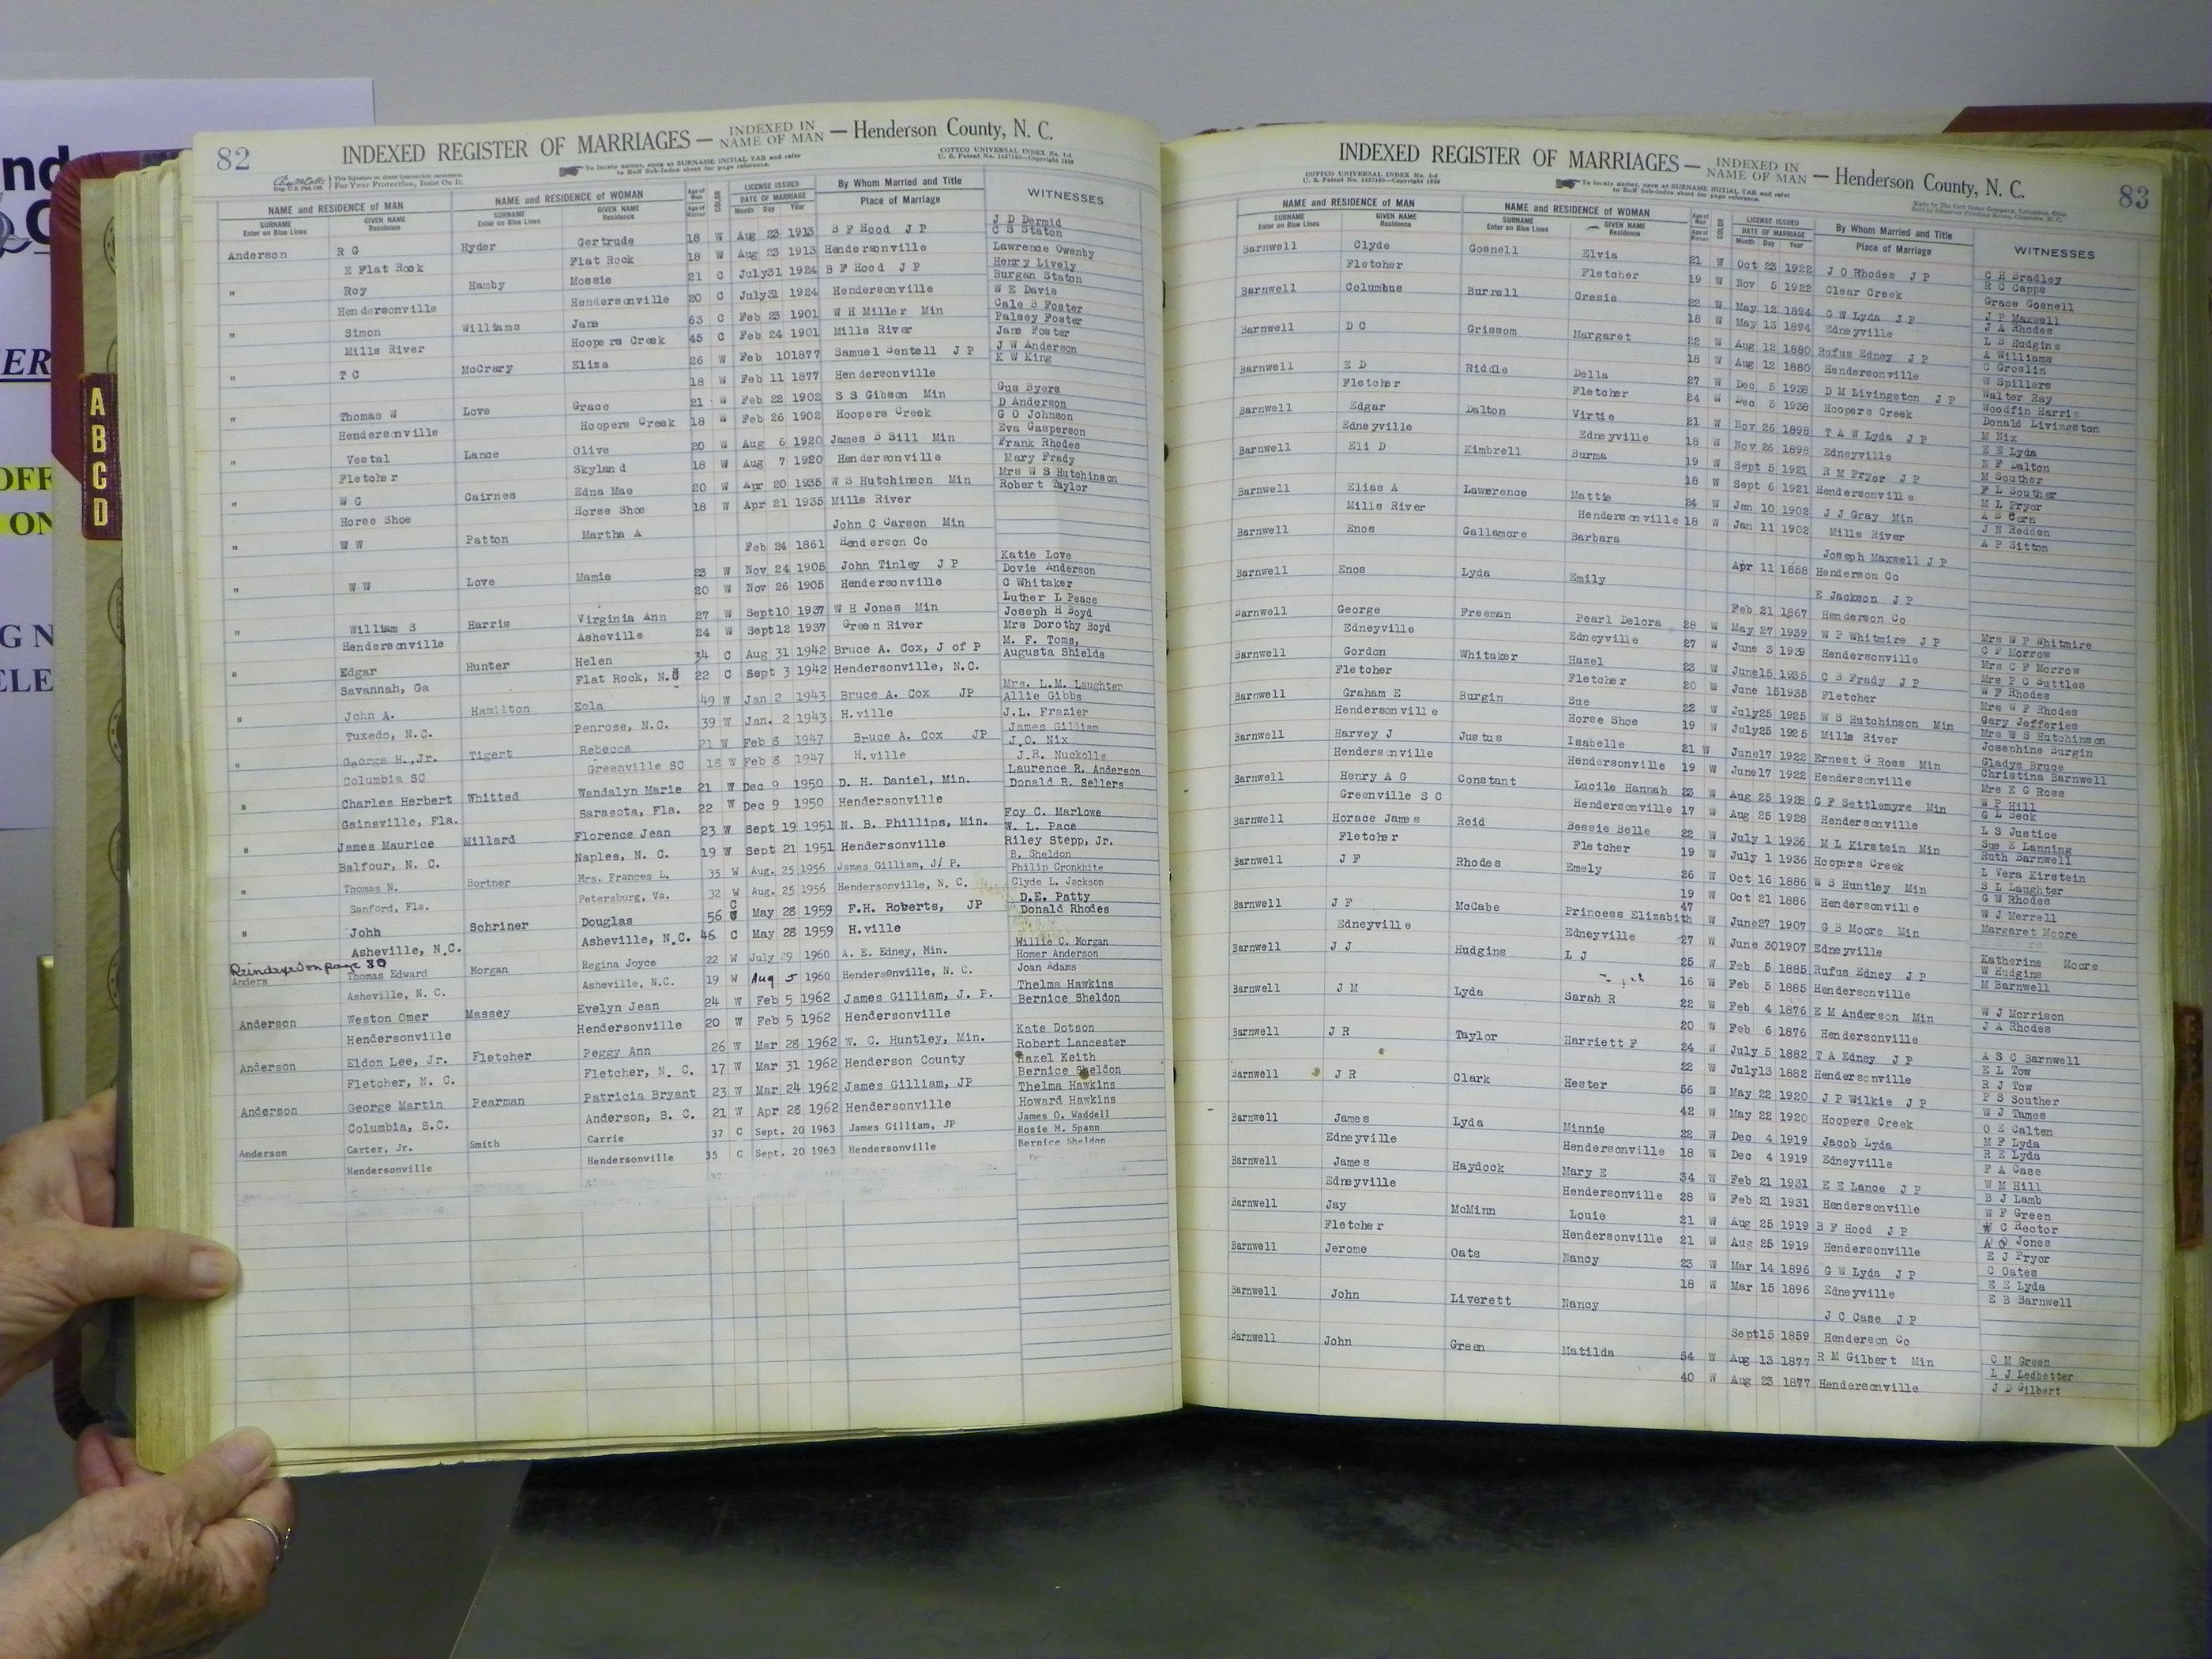 82
INDEXED REGISTER OF MARRIAGES — INDEXED IN NAME OF MAN — Henderson County, N. C.
To locate names, open at SURNAME INITIAL TAB and refer to Buff Sub-Index sheet for page reference.
COTTCO UNIVERSAL INDEX No. 1-4
For Your Protection, Insist On It.
NAME and RESIDENCE of MAN NAME and RESIDENCE of WOMAN Age of Man COLOR LICENSE ISSUED By Whom Married and Title WITNESSES
SURNAME Enter on Blue Lines GIVEN NAME Residence SURNAME Enter on Blue Lines GIVEN NAME Residence Age of Woman DATE OF MARRIAGE Month Day Year Place of Marriage
Anderson R G Hyder Gertrude 18 W Aug 23 1913 B F Hood J P J D Dermid
E Flat Rock Flat Rock 18 W Aug 23 1913 Hendersonville C S Staton
" Roy Hamby Mossie 21 C July31 1924 B F Hood J P Lawrence Owenby
Hendersonville Hendersonville 20 C July31 1924 Hendersonville Henry Lively
Burgan Staton
" Simon Williams Jane 63 C Feb 23 1901 W H Miller Min W E Davis
Mills River Hoopers Creek 45 C Feb 24 1901 Mills River Cale B Foster
Palsey Foster
Jane Foster
" T C McCrary Eliza 26 W Feb 101877 Samuel Sentell J P J W Anderson
18 W Feb 11 1877 Hendersonville K W King
" Thomas W Love Grace 21 W Feb 22 1902 S S Gibson Min Gus Byers
Hendersonville Hoopers Creek 18 W Feb 26 1902 Hoopers Creek D Anderson
G O Johnson
" Vestal Lance Olive 20 W Aug 6 1920 James B Sill Min Eva Gasperson
Fletcher Skyland 18 W Aug 7 1920 Hendersonville Frank Rhodes
Mary Frady
" W G Cairnes Edna Mae 20 W Apr 20 1935 W S Hutchinson Min Mrs W S Hutchinson
Horse Shoe Horse Shoe 18 W Apr 21 1935 Mills River Robert Taylor
" W W Patton Martha A John C Carson Min
Feb 24 1861 Henderson Co
" W W Love Mamie 23 W Nov 24 1905 John Tinley J P Katie Love
20 W Nov 26 1905 Hendersonville Dovie Anderson
C Whitaker
" William S Harris Virginia Ann 27 W Sept10 1937 W H Jones Min Luther L Peace
Hendersonville Asheville 24 W Sept12 1937 Green River Joseph H Boyd
Mrs Dorothy Boyd
" Edgar Hunter Helen 34 C Aug 31 1942 Bruce A. Cox, J of P M. F. Toms,
Savannah, Ga Flat Rock, N.C 22 C Sept 3 1942 Hendersonville, N.C. Augusta Shields
" John A. Hamilton Eola 49 W Jan 2 1943 Bruce A. Cox JP Mrs. L.M. Laughter
Tuxedo, N.C. Penrose, N.C. 39 W Jan. 2 1943 H.ville Allie Gibbs
J.L. Frazier
" George H.,Jr. Tigert Rebecca 21 W Feb 8 1947 Bruce A. Cox JP James Gilliam
Columbia SC Greenville SC 18 W Feb 8 1947 H.ville J.C. Nix
J.R. Nuckolls
" Charles Herbert Whitted Wandalyn Marie 21 W Dec 9 1950 D. H. Daniel, Min. Laurence R. Anderson
Gainsville, Fla. Sarasota, Fla. 22 W Dec 9 1950 Hendersonville Donald R. Sellers
" James Maurice Millard Florence Jean 23 W Sept 19 1951 N. B. Phillips, Min. Foy C. Marlowe
Balfour, N. C. Naples, N. C. 19 W Sept 21 1951 Hendersonville W. L. Pace
Riley Stepp, Jr.
" Thomas N. Bortner Mrs. Frances L. 35 W Aug. 25 1956 James Gilliam, J/ P. B. Sheldon
Sanford, Fla. Petersburg, Va. 32 W Aug. 25 1956 Hendersonville, N. C. Philip Cronkhite
Clyde L. Jackson
" John Schriner Douglas 56 C May 28 1959 F.H. Roberts, JP D.E. Patty
Asheville, N.C. Asheville, N.C. 46 C May 28 1959 H.ville Donald Rhodes
Reindexed on page 80
Anders Thomas Edward Morgan Regina Joyce 22 W July 29 1960 A. E. Edney, Min. Willie C. Morgan
Asheville, N. C. Asheville, N.C. 19 W Aug 5 1960 Hendersonville, N. C. Homer Anderson
Joan Adams
Anderson Weston Omer Massey Evelyn Jean 24 W Feb 5 1962 James Gilliam, J. P. Thelma Hawkins
Hendersonville Hendersonville 20 W Feb 5 1962 Hendersonville Bernice Sheldon
Anderson Eldon Lee, Jr. Fletcher Peggy Ann 26 W Mar 28 1962 W. C. Huntley, Min. Kate Dotson
Fletcher, N. C. Fletcher, N. C. 17 W Mar 31 1962 Henderson County Robert Lancester
Hazel Keith
Anderson George Martin Pearman Patricia Bryant 23 W Mar 24 1962 James Gilliam, JP Bernice Sheldon
Columbia, S.C. Anderson, S. C. 21 W Apr 28 1962 Hendersonville Thelma Hawkins
Howard Hawkins
Anderson Carter, Jr. Smith Carrie 37 C Sept. 20 1963 James Gilliam, JP James O. Waddell
Hendersonville Hendersonville 35 C Sept. 20 1963 Hendersonville Rosie M. Spann
Bernice Sheldon
83
INDEXED REGISTER OF MARRIAGES — INDEXED IN NAME OF MAN — Henderson County, N. C.
COTTCO UNIVERSAL INDEX No. 1-4
To locate names, open at SURNAME INITIAL TAB and refer to Buff Sub-Index sheet for page reference.
NAME and RESIDENCE of MAN NAME and RESIDENCE of WOMAN Age of Man COLOR LICENSE ISSUED By Whom Married and Title WITNESSES
SURNAME Enter on Blue Lines GIVEN NAME Residence SURNAME Enter on Blue Lines GIVEN NAME Residence Age of Woman DATE OF MARRIAGE Month Day Year Place of Marriage
Barnwell Clyde Gosnell Elvia 21 W Oct 23 1922 J O Rhodes J P C H Bradley
Fletcher Fletcher 19 W Nov 5 1922 Clear Creek R C Capps
Grace Gosnell
Barnwell Columbus Burrell Cresie 22 W May 12 1894 G W Lyda J P J P Maxwell
18 W May 13 1894 Edneyville J A Rhodes
L B Hudgins
Barnwell D C Grissom Margaret 22 W Aug 12 1880 Rufus Edney J P A Williams
18 W Aug 12 1880 Hendersonville C Groslin
W Spillers
Barnwell E D Riddle Della 27 W Dec 5 1938 D M Livingston J P Walter Ray
Fletcher Fletcher 24 W Dec 5 1938 Hoopers Creek Woodfin Harris
Donald Livingston
Barnwell Edgar Dalton Virtie 21 W Nov 26 1898 T A W Lyda J P M Nix
Edneyville Edneyville 18 W Nov 26 1898 Edneyville E E Lyda
N F Dalton
Barnwell Eli D Kimbrell Burma 19 W Sept 5 1921 R M Pryor J P M Souther
18 W Sept 6 1921 Hendersonville F L Souther
M L Pryor
Barnwell Elias A Lawrence Mattie 24 W Jan 10 1902 J J Gray Min A B Corn
Mills River Hendersonville 18 W Jan 11 1902 Mills River J N Redden
A P Sitton
Barnwell Enos Gallamore Barbara Joseph Maxwell J P
Apr 11 1858 Henderson Co
Barnwell Enos Lyda Emily E Jackson J P
Feb 21 1867 Henderson Co
Barnwell George Freeman Pearl Delora 28 W May 27 1939 W P Whitmire J P Mrs W P Whitmire
Edneyville Edneyville 27 W June 3 1939 Hendersonville C F Morrow
Mrs C F Morrow
Barnwell Gordon Whitaker Hazel 23 W June15 1935 C B Frady J P Mrs P C Suttles
Fletcher Fletcher 20 W June 151935 Fletcher W F Rhodes
Mrs W F Rhodes
Barnwell Graham E Burgin Sue 22 W July25 1925 W S Hutchinson Min Gary Jefferies
Hendersonville Horse Shoe 19 W July25 1925 Mills River Mrs W S Hutchinson
Josephine Burgin
Barnwell Harvey J Justus Isabelle 21 W June17 1922 Ernest G Ross Min Gladys Bruce
Hendersonville Hendersonville 19 W June17 1922 Hendersonville Christina Barnwell
Mrs E G Ross
Barnwell Henry A G Constant Lucile Hannah 23 W Aug 25 1928 G F Settlemyre Min W P Hill
Greenville S C Hendersonville 17 W Aug 25 1928 Hendersonville G L Beck
L S Justice
Barnwell Horace James Reid Bessie Belle 22 W July 1 1936 M L Kirstein Min Sue E Lanning
Fletcher Fletcher 19 W July 1 1936 Hoopers Creek Ruth Barnwell
L Vera Kirstein
Barnwell J F Rhodes Emely 26 W Oct 16 1886 W S Huntley Min S L Laughter
19 W Oct 21 1886 Hendersonville G W Rhodes
W J Merrell
Barnwell J F McCabe Princess Elizabith 47 W June27 1907 G B Moore Min Margaret Moore
Edneyville Edneyville 27 W June 301907 Edneyville
Katherine Moore
Barnwell J J Hudgins L J 25 W Feb 5 1885 Rufus Edney J P W Hudgins
16 W Feb 5 1885 Hendersonville M Barnwell
Barnwell J M Lyda Sarah R 22 W Feb 4 1876 E M Anderson Min W J Morrison
20 W Feb 6 1876 Hendersonville J A Rhodes
Barnwell J R Taylor Harriett F 24 W July 5 1882 T A Edney J P A S C Barnwell
22 W July13 1882 Hendersonville E L Tow
R J Tow
Barnwell J R Clark Hester 56 W May 22 1920 J P Wilkie J P P S Souther
42 W May 22 1920 Hoopers Creek W J Tames
O E Calten
Barnwell James Lyda Minnie 22 W Dec 4 1919 Jacob Lyda M F Lyda
Edneyville Hendersonville 18 W Dec 4 1919 Edneyville R E Lyda
F A Case
Barnwell James Haydock Mary E 34 W Feb 21 1931 E E Lance J P W M Hill
Edneyville Hendersonville 28 W Feb 21 1931 Hendersonville B J Lamb
W F Green
Barnwell Jay McMinn Louie 21 W Aug 25 1919 B F Hood J P W C Rector
Fletcher Hendersonville 21 W Aug 25 1919 Hendersonville A O Jones
E J Pryor
Barnwell Jerome Oats Nancy 23 W Mar 14 1896 G W Lyda J P C Oates
18 W Mar 15 1896 Edneyville E E Lyda
E B Barnwell
Barnwell John Liverett Nancy J C Case J P
Sept15 1859 Henderson Co
Barnwell John Green Matilda 54 W Aug 13 1877 R M Gilbert Min C M Green
40 W Aug 23 1877 Hendersonville L J Ledbetter
J D Gilbert
A
B
C
D